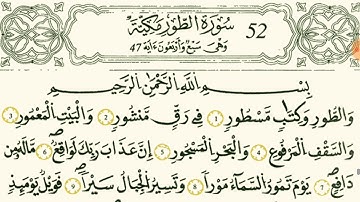 سُورَةُ الطُّورِ مَكِّيَّةٌ 52
وَهِيَ سَبْعٌ وَأَرْبَعُونَ ءَايَة 47
بِسْمِ اللَّهِ الرَّحْمَٰنِ الرَّحِيمِ
وَالطُّورِ وَكِتَٰبٍ مَّسْطُورٍ 1 فِي رَقٍّ مَّنشُورٍ 2 وَالْبَيْتِ الْمَعْمُورِ 3
وَالسَّقْفِ الْمَرْفُوعِ 4 وَالْبَحْرِ الْمَسْجُورِ 5 إِنَّ عَذَابَ رَبِّكَ لَوَٰقِعٌ 6 مَّا لَهُۥ مِن
دَافِعٍ 7 يَوْمَ تَمُورُ السَّمَآءُ مَوْرًا 8 وَتَسِيرُ الْجِبَالُ سَيْرًا 9 فَوَيْلٌ يَوْمَئِذٍ